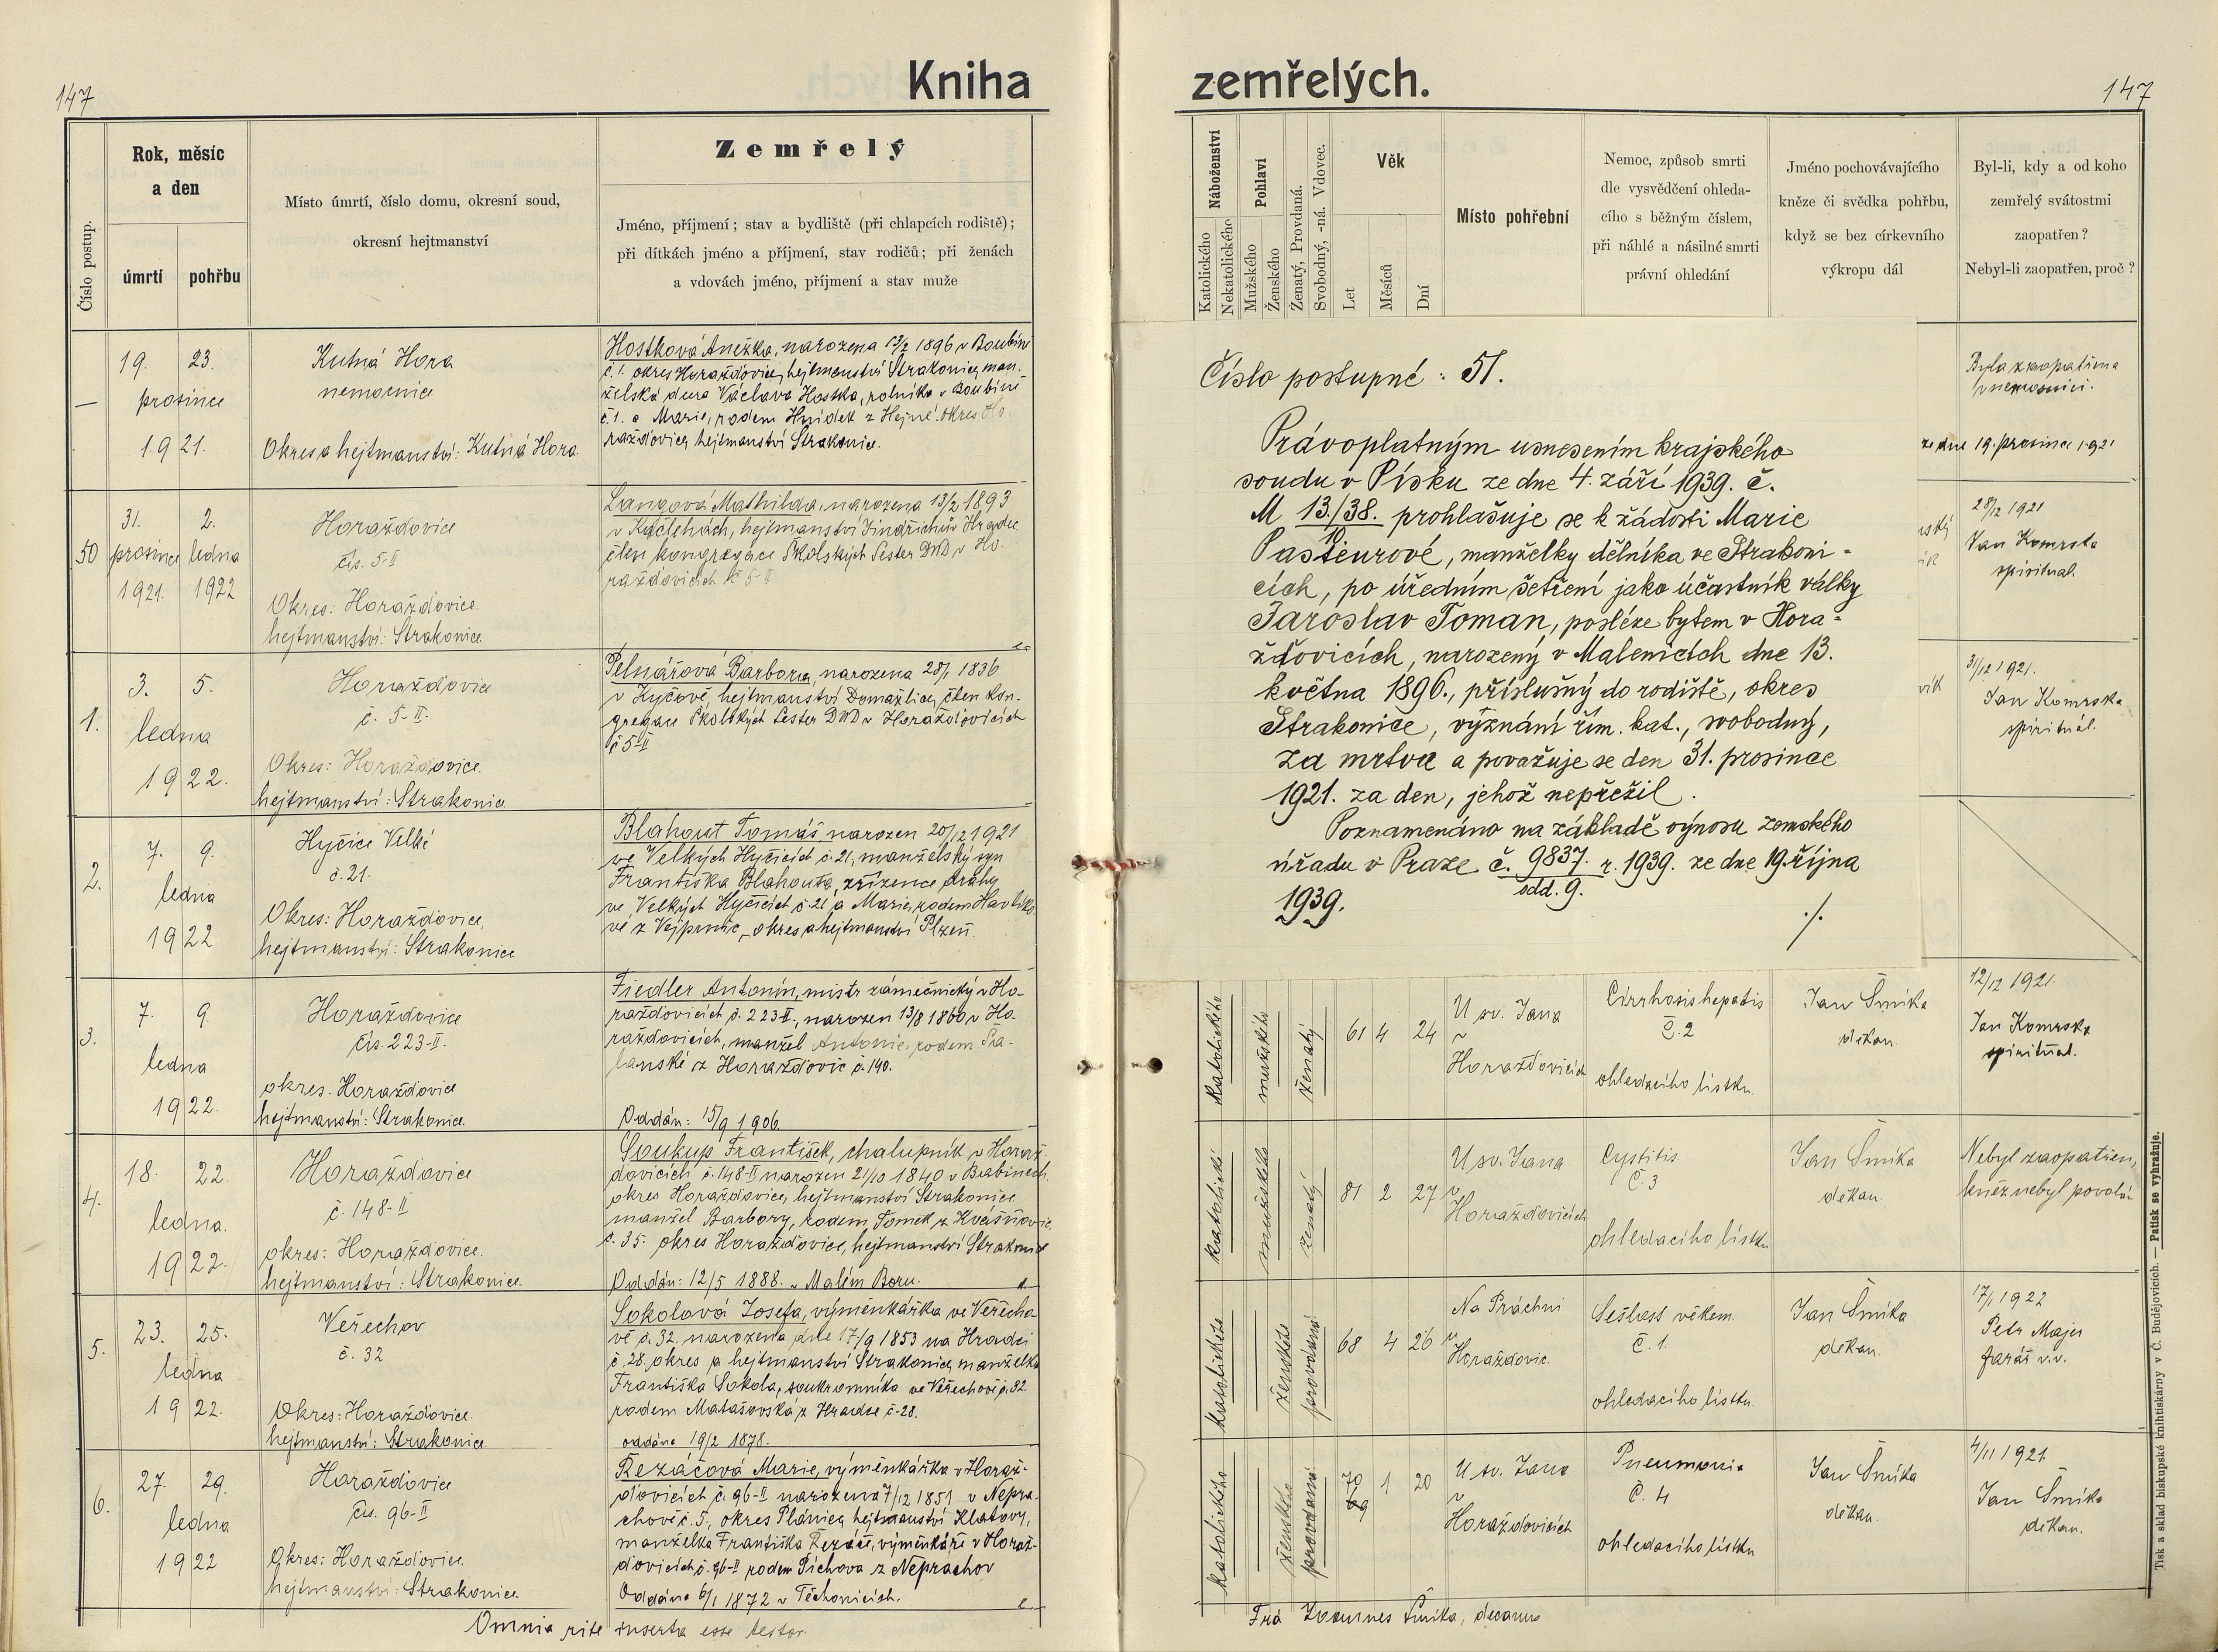 147
Kniha
Číslo postup.
Rok, měsíc
a den
úmrtí
pohřbu
Místo úmrtí, číslo domu, okresní soud,
okresní hejtmanství
Zemřelý
Jméno, příjmení; stav a bydliště (při chlapcích rodiště);
při dítkách jméno a příjmení, stav rodičů; při ženách
a vdovách jméno, příjmení a stav muže
—
19. 23.
prosince
1921.
Kutná Hora
nemocnice
Okres a hejtmanství: Kutná Hora
Hostková Anežka, narozena 13/2 1896 v Boubín
č. 1. okres Horažďovice, hejtmanství Strakonice, man-
želská dcera Václava Hostka, rolníka v Boubíně
č. 1. a Marie, rodem Hnídek z Hejné. okres Ho
ražďovice, hejtmanství Strakonice.
50
31. 2.
prosince ledna
1921. 1922
Horažďovice
čís. 5-II
Okres: Horažďovice.
hejtmanství: Strakonice
Langová Mathilda, narozena 13/2 1893
v Kačlehách, hejtmanství Jindřichův Hradec
člen kongregace Školských Sester DND v Ho.
ražďovicích č 5-II
1.
3. 5.
ledna
1922.
Horažďovice
č. 5-II.
Okres: Horažďovice.
hejtmanství: Strakonice
Pelnářová Barbora, narozena 28/1 1836
v Kyčově, hejtmanství Domažlice, člen kon-
gregace Školských Sester DND v Horažďovicích
č 5-II
2.
7. 9.
ledna
1922
Hyčice Velké
č. 21.
Okres: Horažďovice,
hejtmanství: Strakonice
Blahout Tomáš, narozen 20/12 1921
ve Velkých Hyčicích č. 21, manželský syn
Františka Blahouta, zřízence dráhy
ve Velkých Hyčicích č 21 a Marie, rodem Havlíko
vé z Vejprnic, okres a hejtmanství Plzeň
3.
7. 9.
ledna
1922.
Horažďovice
čís. 223-II.
okres. Horažďovice
hejtmanství: Strakonice.
Fiedler Antonín, mistr zámečnický v Ho-
ražďovicích č. 223-II., narozen 13/8 1860 v Ho.
ražďovicích, manžel Antonie, rodem
z Horažďovic č. 140.
Oddán: 15/9 1906.
4.
18. 22.
ledna.
1922.
Horažďovice
č. 148-II
okres: Horažďovice.
hejtmanství: Strakonice.
Soukup František, chalupník v Horaž
ďovicích č. 148-II narozen 21/10 1840 v Babinech,
okres Horažďovice, hejtmanství Strakonice
manžel Barbory, rodem Tomek z Kvášňovic
č. 35. okres Horažďovice, hejtmanství Strakonice
Oddán: 12/5 1888. v Malém Boru.
5.
23. 25.
ledna
1922.
Veřechov
č. 32
Okres: Horažďovice.
hejtmanství: Strakonice
Sokolová Josefa, výměnkářka ve Veřecho
vě č. 32. narozena dne 17/9 1853 na Hradci
č. 28. okres a hejtmanství Strakonice, manželka
Františka Sokola, soukromníka ve Veřechově č. 32.
rodem Matašovská z Hradce č. 28.
oddána 19/2 1878.
6.
27. 29.
ledna
1922
Horažďovice
čís. 96-II
Okres: Horažďovice.
hejtmanství: Strakonice.
Řezáčová Marie, výměnkářka v Horaž-
ďovicích č. 96-II narozena 7/12 1851 v Nepra
chově č. 5., okres Plánice, hejtmanství Klatovy,
manželka Františka Řezáče, výměnkáře v Horaž-
ďovicích č. 96-II rodem Píchova z Neprachov
Oddána 6/1 1872 v Těchonicích.
Omnia rite inserta esse testor
zemřelých.
147
Náboženství
Katolického
Nekatolického
Pohlaví
Mužského
Ženského
Ženatý, Provdaná.
Svobodný, -ná. Vdovec.
Věk
Let
Měsíců
Dní
Místo pohřební
Nemoc, způsob smrti
dle vysvědčení ohleda-
cího s běžným číslem,
při náhlé a násilné smrti
právní ohledání
Jméno pochovávajícího
kněze či svědka pohřbu,
když se bez církevního
výkropu dál
Byl-li, kdy a od koho
zemřelý svátostmi
zaopatřen?
Nebyl-li zaopatřen, proč?
Číslo postupné: 51.
Právoplatným usnesením krajského
soudu v Písku ze dne 4. září 1939. č.
M 13./38. prohlašuje se k žádosti Marie
10
Pastieurové, manželky dělníka ve Strakoni-
cích, po úředním šetření jako účastník války
Jaroslav Toman, posléze bytem v Hora-
žďovicích, narozený v Malenicích dne 13.
května 1896., příslušný do rodiště, okres
Strakonice, význání řím. kat., svobodný,
za mrtva a považuje se den 31. prosince
1921. za den, jehož nepřežil.
Poznamenáno na základě výnosu zemského
úřadu v Praze č. 9837. r. 1939. ze dne 19. října
odd. 9.
1939.
./.
Byla zaopatřena
v nemocnici.
ze dne 19. prosince 1921
28/12 1921
Jan Komrska
spirituál.
31/12 1921.
Jan Komrska
spirituál.
katolického
mužského
ženatý
61 4 24
U sv. Jana
v
Horažďovicích
Cirrhosis hepatis
Č. 2
ohledacího lístku.
Jan Šmíka
děkan
12/12 1921.
Jan Komrska
spirituál.
katolické
mužského
ženatý
81 2 27
U sv. Jana
v
Horažďovicích
Cystitis.
Č. 3
ohledacího lístku
Jan Šmíka
děkan.
Nebyl zaopatřen,
kněz nebyl povolán
katolického
ženského
provdaná
68 4 26
Na Práchni
u
Horažďovic.
Sešlost věkem.
Č. 1.
ohledacího lístku.
Jan Šmíka
děkan.
17/1 1922
Petr Majer
farář v.v.
katolického
ženského
provdaná
70 1 20
69
U sv. Jana
v
Horažďovicích
Pneumonia
Č. 4
ohledacího lístku
Jan Šmíka
děkan.
4/11 1921.
Jan Šmíka
děkan.
Fra Joannes Šmíka, decanus
Tisk a sklad biskupské knihtiskárny v Č. Budějovicích. — Patisk se vyhražuje.